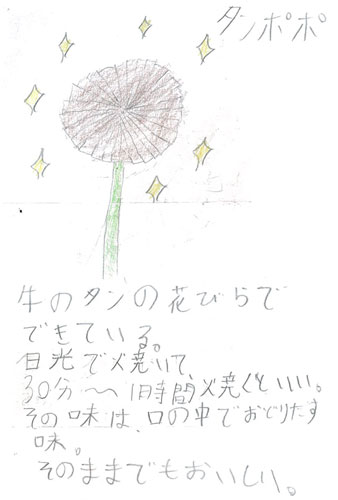 タンポポ
牛のタンの花びらで
できている。
日光で焼いて、
30分〜1時間焼くといい。
その味は、口の中でおどりだす
味。
そのままでもおいしい。